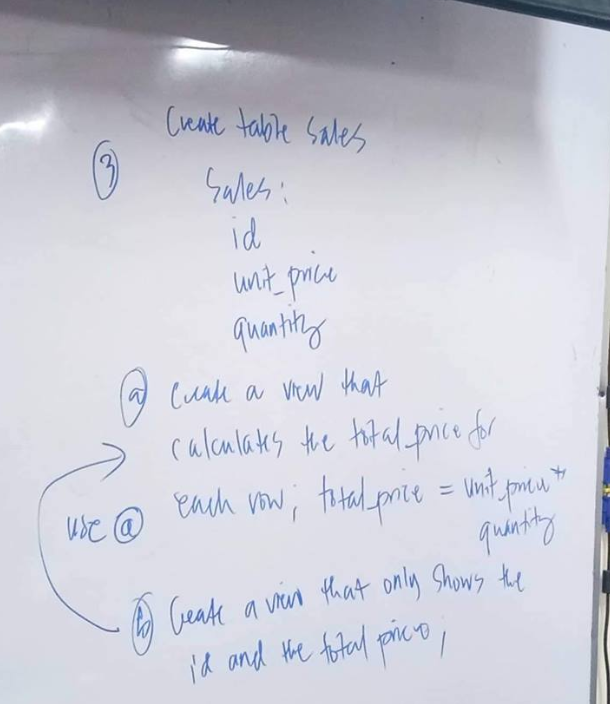 Create table Sales
③
Sales:
id
unit_price
quantity
ⓐ Create a view that
calculates the total_price for
each row; total_price = unit_price *
quantity
use ⓐ
ⓑ Create a view that only shows the
id and the total price;